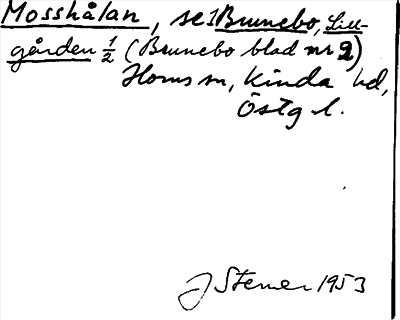 Mosshålan, se 1 Brunnebo, Lill-
gården 1/2 (Brunnebo blad nr 2)
Horns sn, Kinda hd,
Östg l.
J Stener 1953